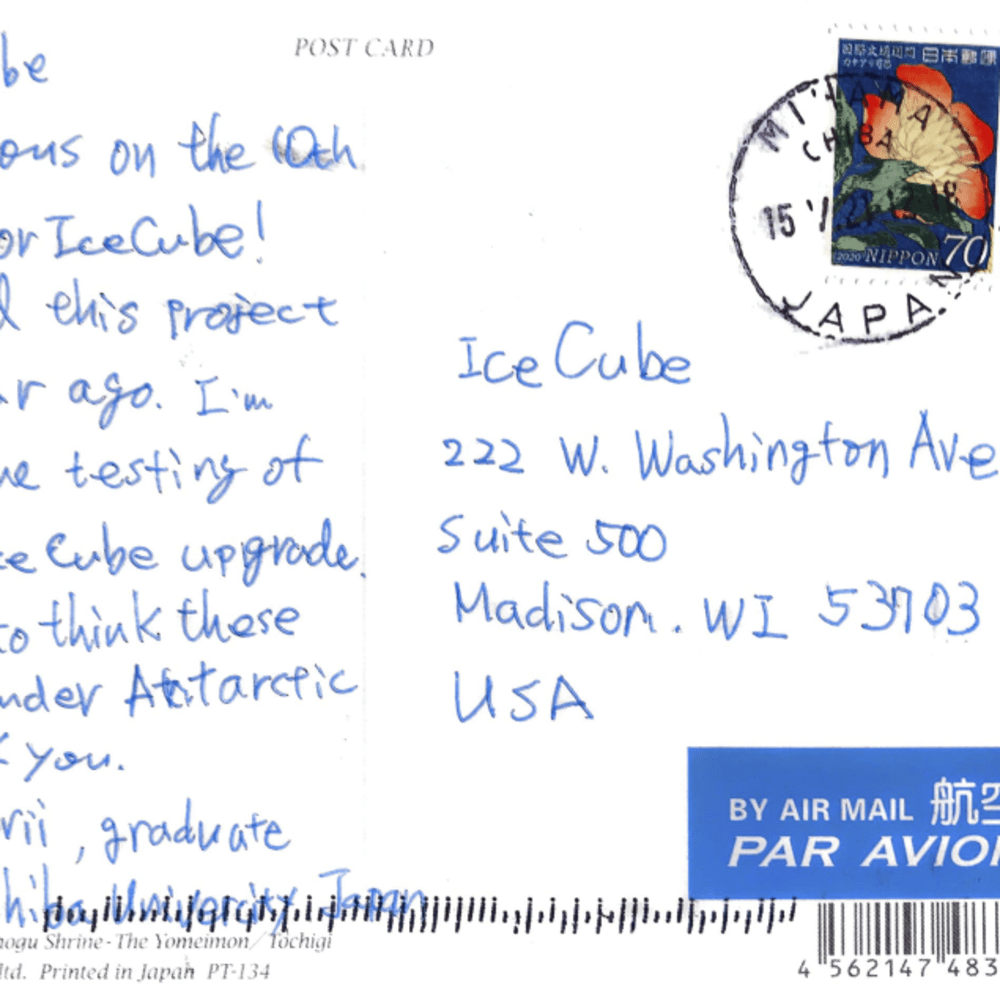 POST CARD
be
ous on the 10th
or IceCube!
this project
r ago. I'm
he testing of
ce Cube upgrade.
to think these
nder Antarctic
k you.
rii, graduate
hiba University Japan
hogu Shrine-The Yomeimon / Tochigi
ltd. Printed in Japan PT-134
国際文通週間 日本郵便
2020 NIPPON 70
MIHAMA
CHIBA
JAPAN
IceCube
222 W. Washington Ave
Suite 500
Madison. WI 53703
USA
BY AIR MAIL 航空
PAR AVION
4 562147 483